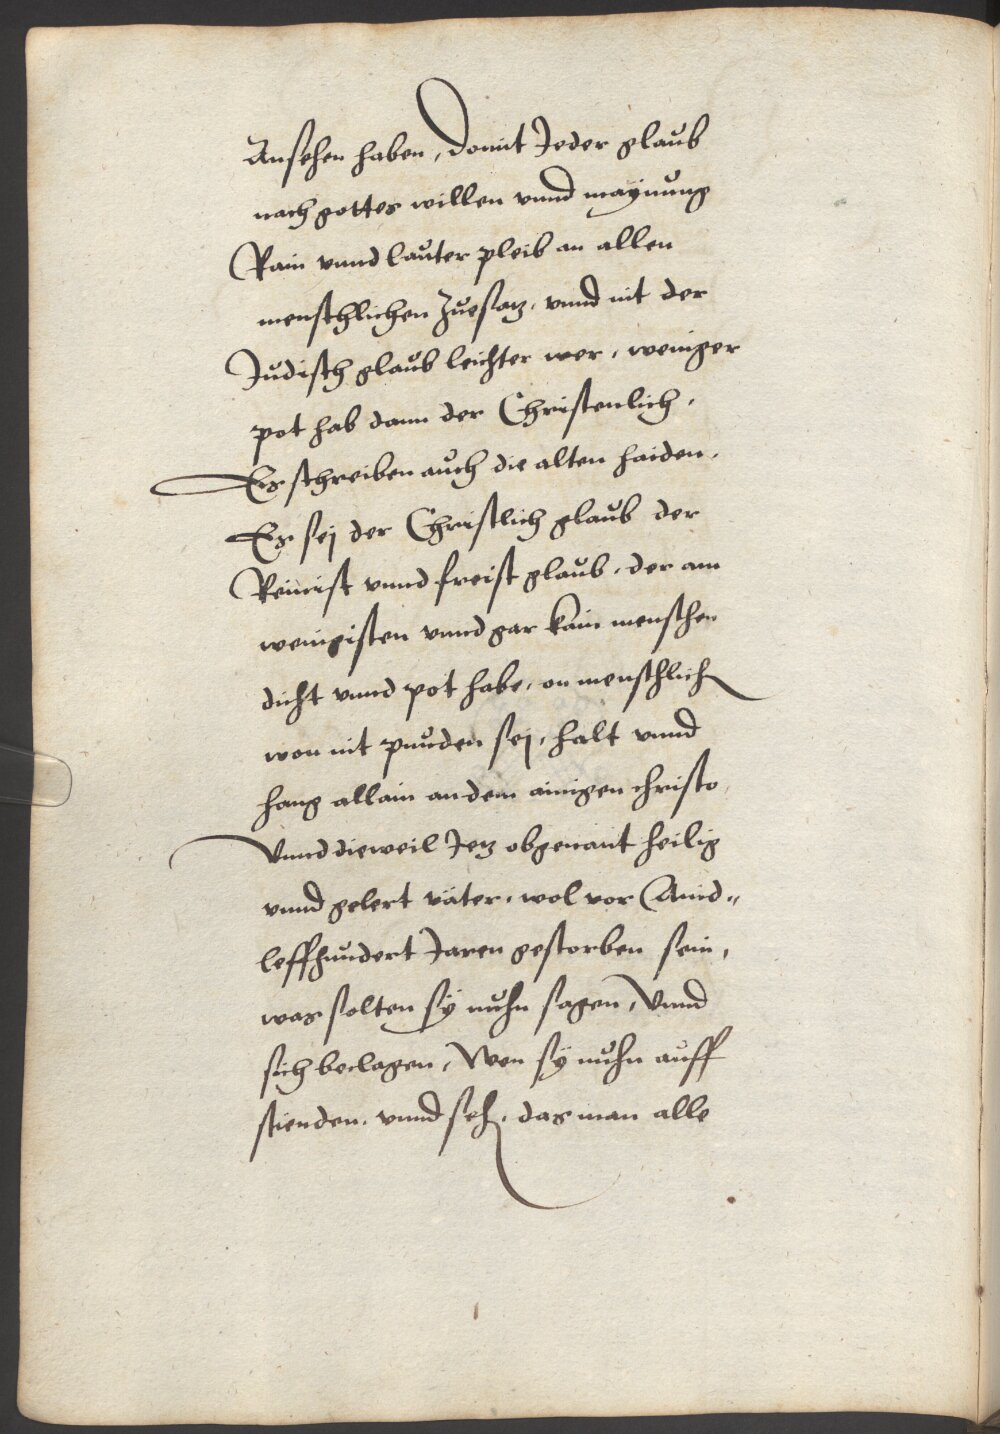 Ansehen haben, domit Jeder glaub
nach gottes willen vnnd maÿnung
Rain vnnd lauter pleib an allen
menschlichen Zuesatz, vnnd nit der
Judisch glaub leichter wer, weniger
pot hab dann der Christenlich,
Es schreiben auch die alten haiden,
Es sej der Christlich glaub der
Reinist vnnd freist glaub, der am
wenigisten vnnd gar kain menschen
dicht vnnd pot habe, on menschlich
won nit punden sej, halt vnnd
hang allain an dem ainigen christo
Vnnd dieweil Jetz obgenant heilig
vnnd gelert väter, wol vor Aind„
leffhundert Jaren gestorben sein,
was solten sÿ nuhn sagen, Vnnd
sich beclagen, Wen sÿ nuhn auff
stienden, vnnd seh, das man alle